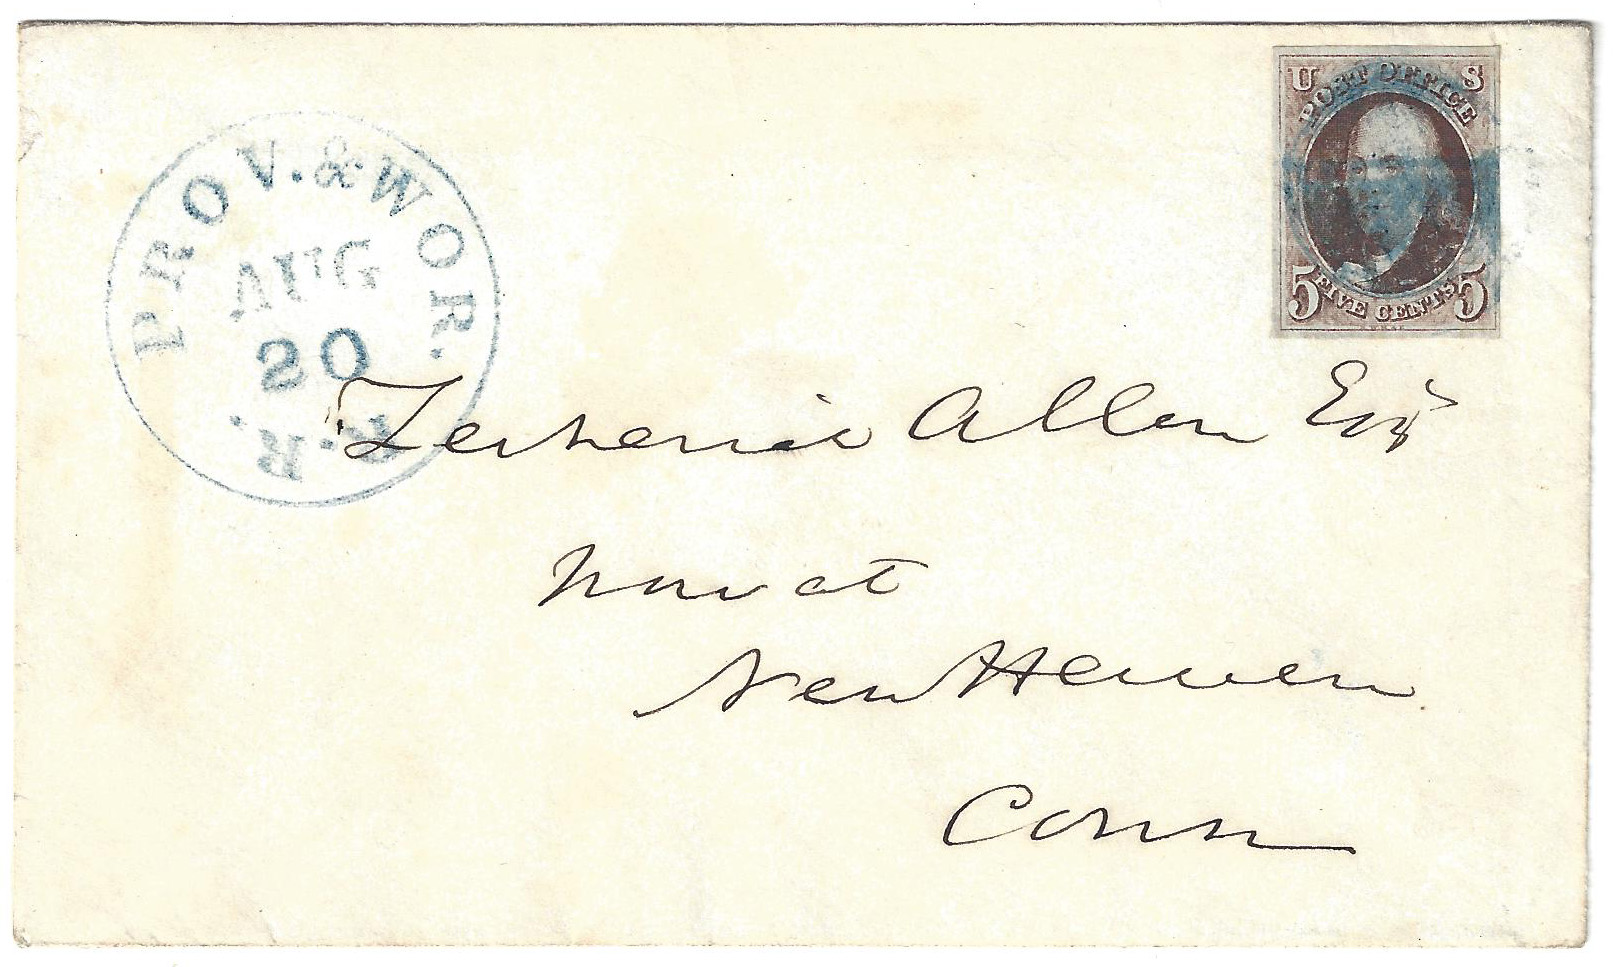 PROV. & WOR. R.R.
AUG
20
U S
POST OFFICE
5 FIVE CENTS 5
Zecheriah Allen Esqr
Now at
New Haven
Conn